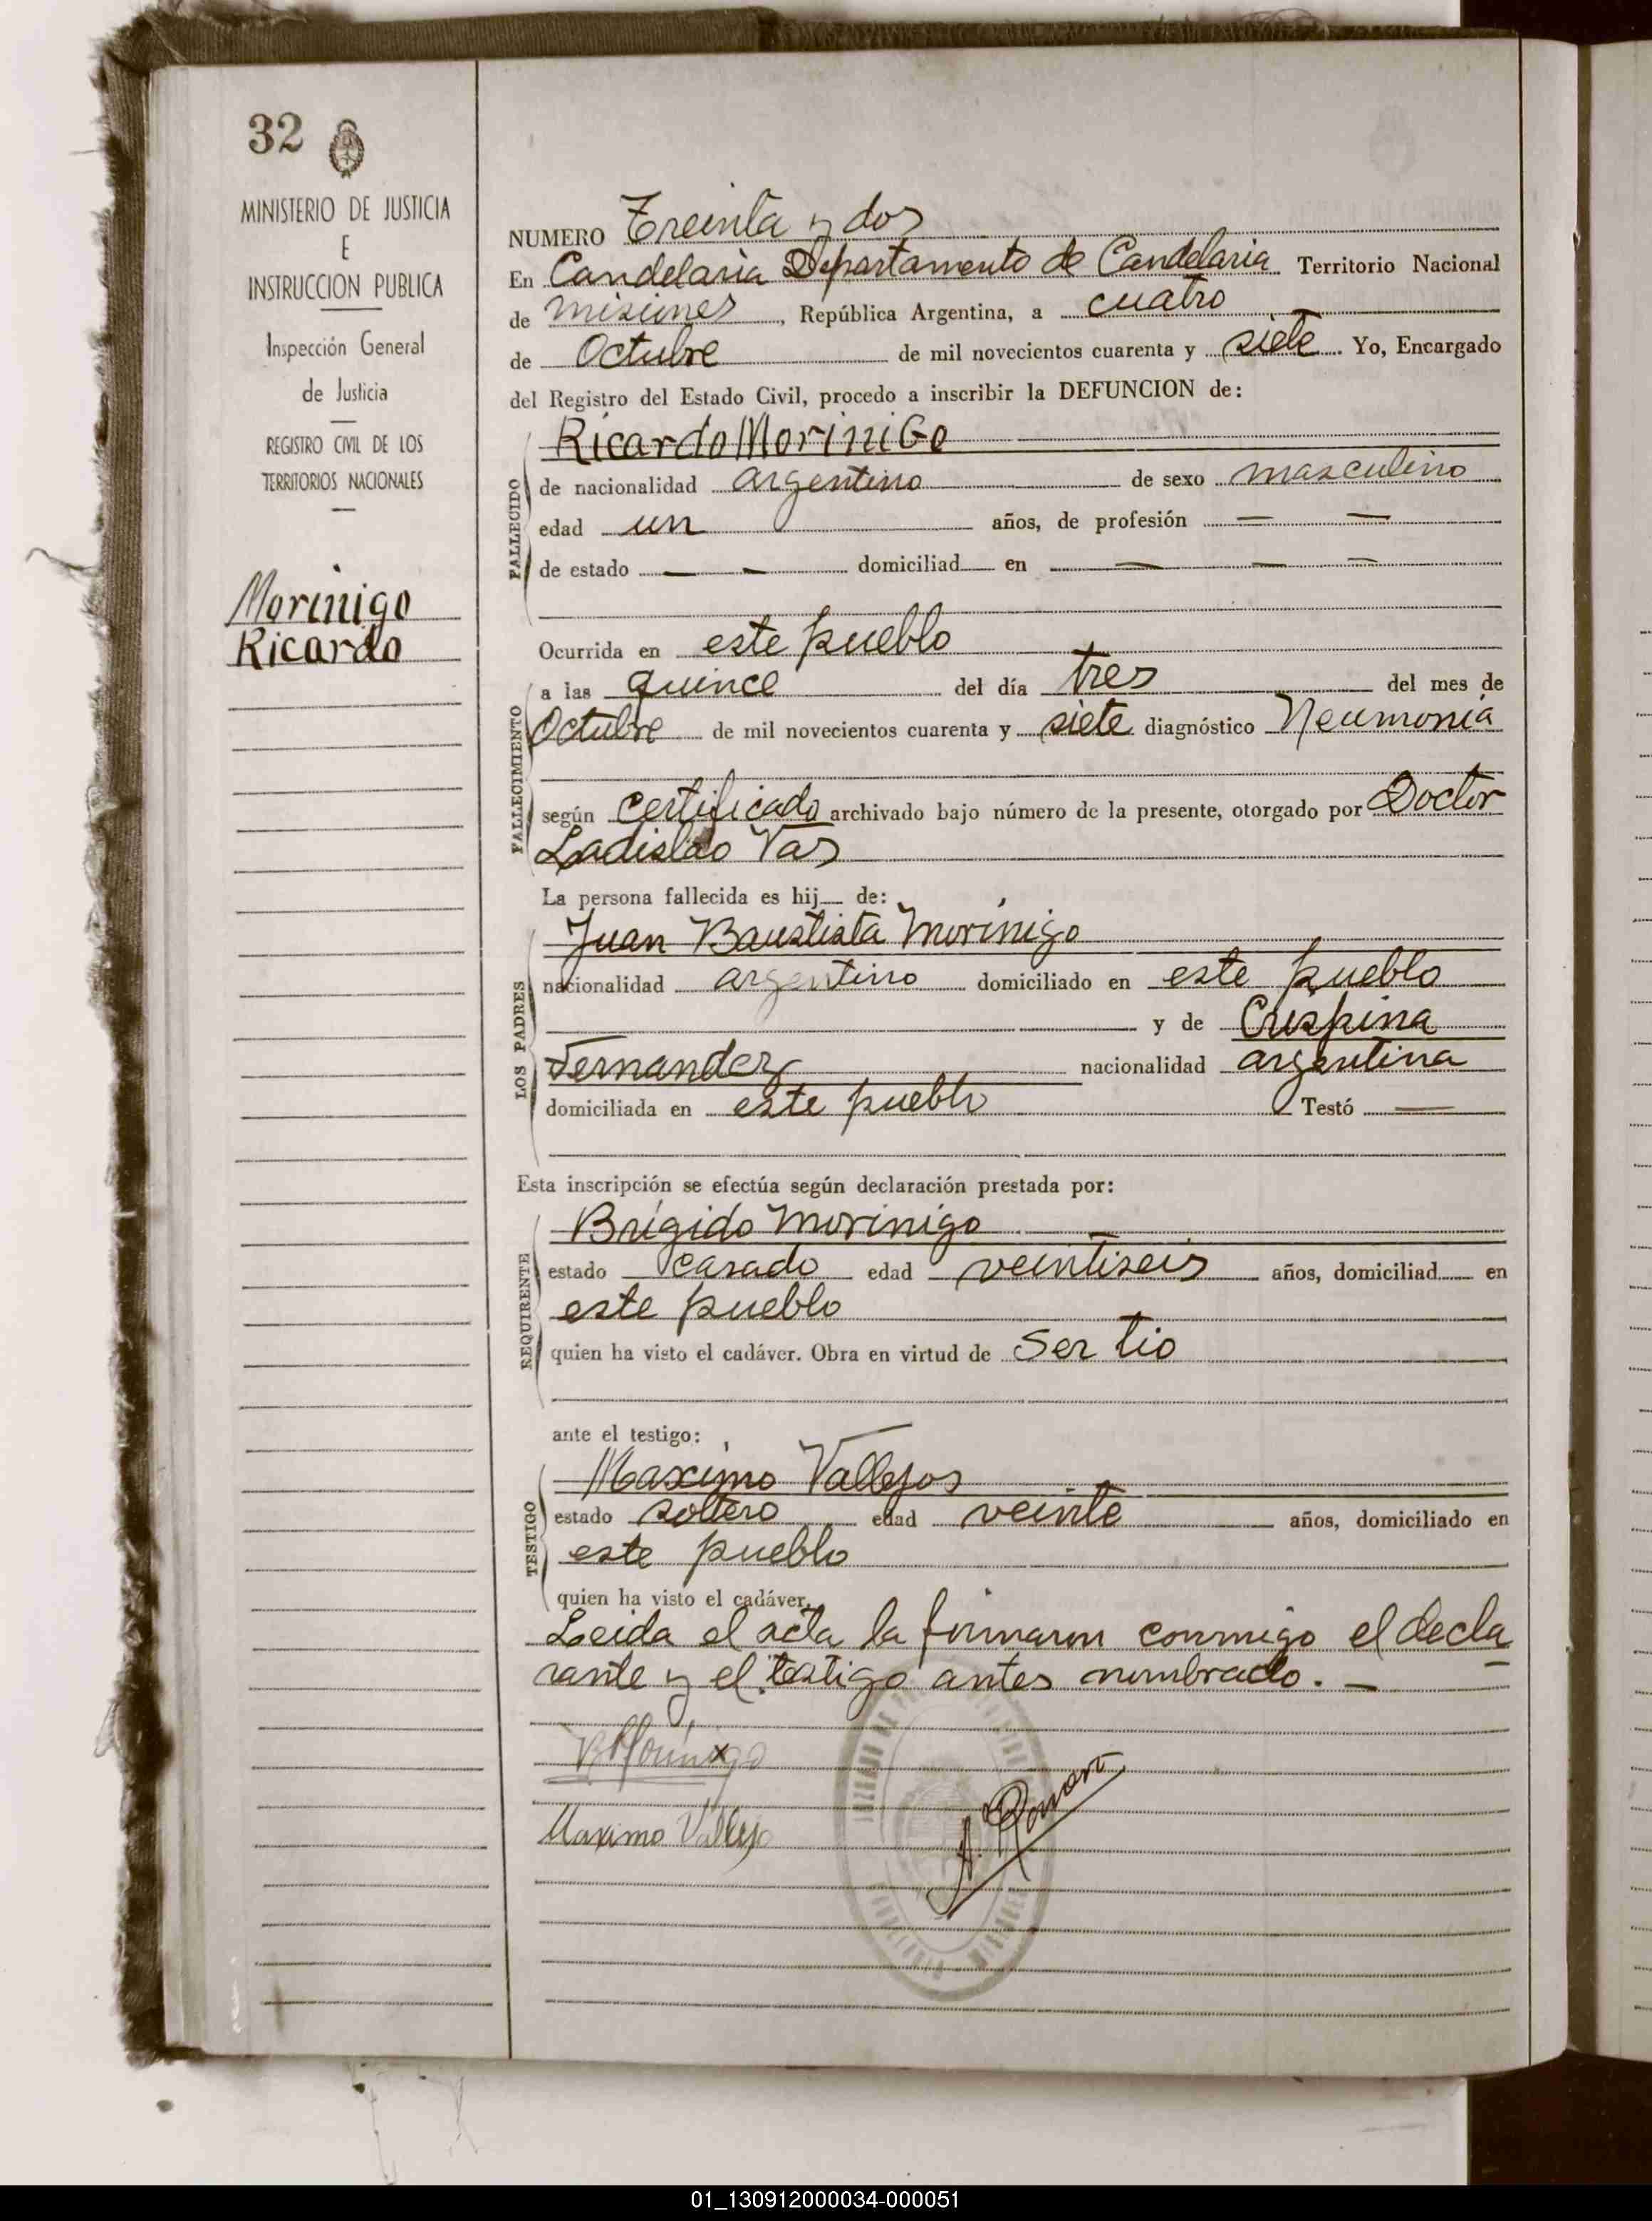 32
MINISTERIO DE JUSTICIA
E
INSTRUCCION PUBLICA
Inspección General
de Justicia
REGISTRO CIVIL DE LOS
TERRITORIOS NACIONALES
Morinigo
Ricardo
NUMERO Treinta y dos
En Candelaria Departamento de Candelaria Territorio Nacional
de Misiones, República Argentina, a cuatro
de Octubre de mil novecientos cuarenta y siete. Yo, Encargado
del Registro del Estado Civil, procedo a inscribir la DEFUNCION de:
Ricardo Morinigo
FALLECIDO
de nacionalidad argentino de sexo masculino
edad un años, de profesión — —
de estado — — domiciliad en — — —
Ocurrida en este pueblo
FALLECIMIENTO
a las quince del día tres del mes de
Octubre de mil novecientos cuarenta y siete diagnóstico Neumonía
según certificado archivado bajo número de la presente, otorgado por Doctor
Ladislao Vas
La persona fallecida es hij de:
LOS PADRES
Juan Baustista Morinigo
nacionalidad argentino domiciliado en este pueblo
y de Crispina
Fernandez nacionalidad argentina
domiciliada en este pueblo Testó —
Esta inscripción se efectúa según declaración prestada por:
REQUIRENTE
Brígido Morinigo —
estado casado edad veintiseis años, domiciliad en
este pueblo
quien ha visto el cadáver. Obra en virtud de Ser tio
ante el testigo:
TESTIGO
Maximo Vallejos
estado soltero edad veinte años, domiciliado en
este pueblo
quien ha visto el cadáver.
Leida el acta la firmaron conmigo el decla
rante y el testigo antes nombrado. —
B Morinigo
Maximo Vallejo
01_130912000034-000051